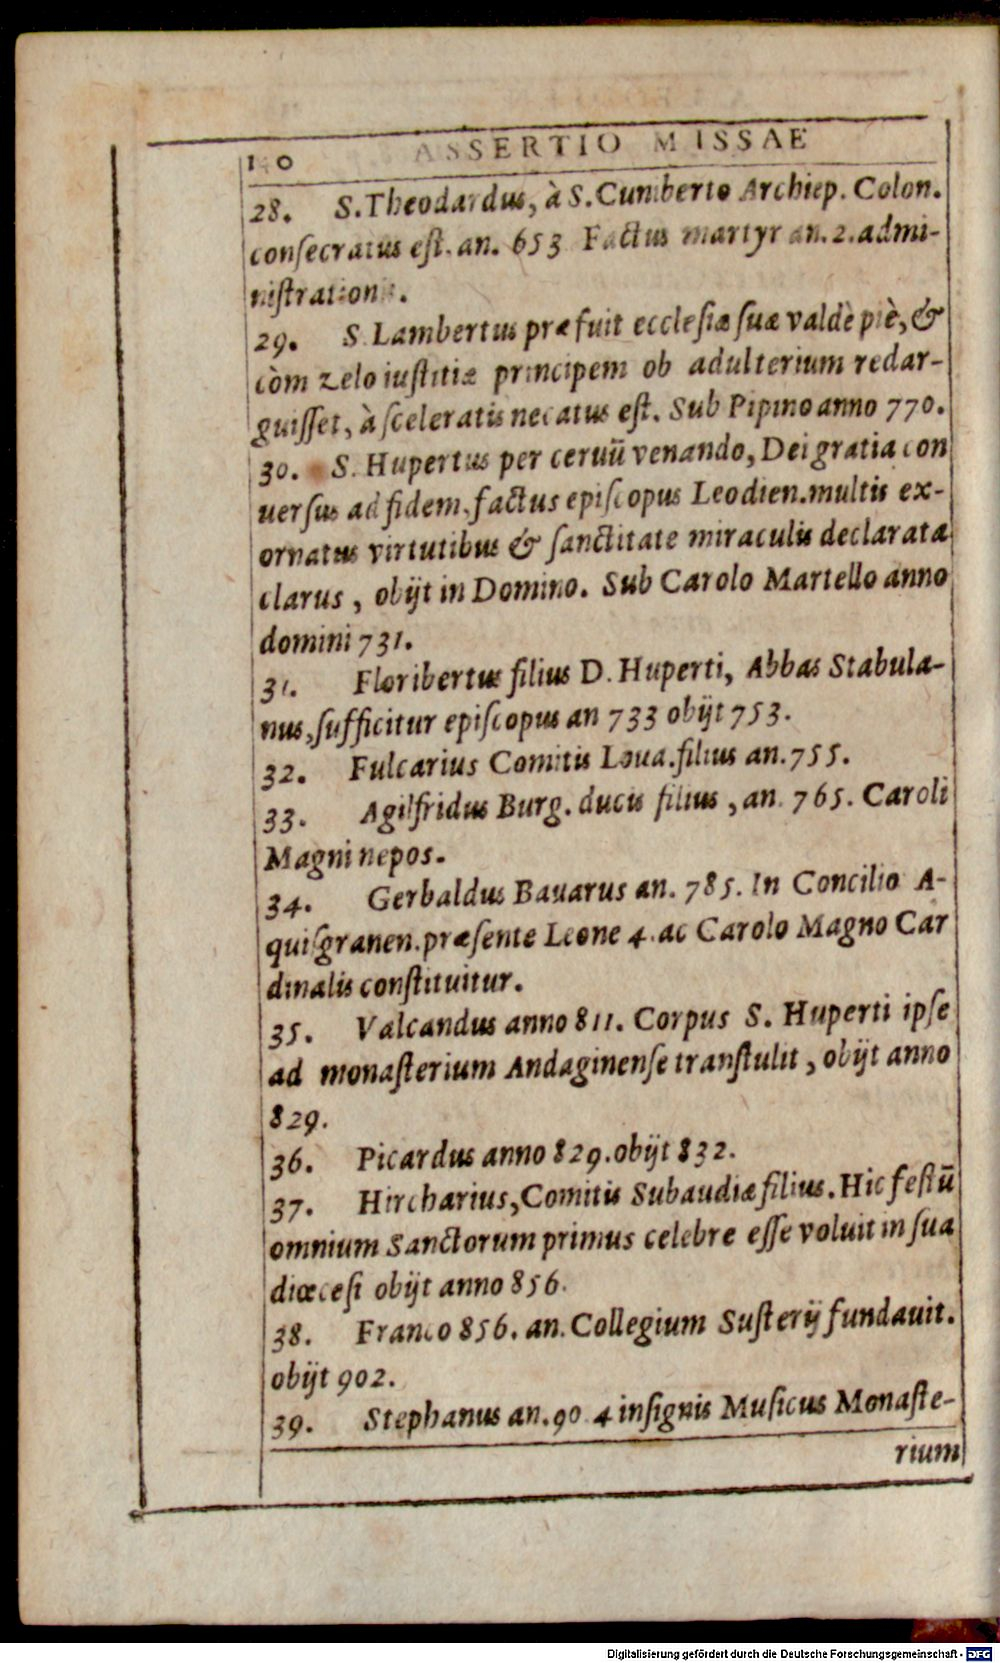 ASSERTIO MISSAE
28. S. Theodardus, à S. Cumberto Archiep. Colon.
conſecratus eſt. an. 653 Factus martyr an. 2. admi-
niſtrationis.
29. S. Lambertus præfuit eccleſiæ ſuæ valdè piè, &
còm zelo iuſtitiæ principem ob adulterium redar-
guiſſet, à ſceleratis necatus eſt. Sub Pipino anno 770.
30. S. Hupertus per ceruū venando, Dei gratia con
uerſus ad fidem, factus epiſcopus Leodien. multis ex-
ornatus virtutibus & ſanctitate miraculis declarata
clarus, obijt in Domino. Sub Carolo Martello anno
domini 731.
31. Floribertus filius D. Huperti, Abbas Stabula-
nus, ſufficitur epiſcopus an 733 obijt 753.
32. Fulcarius Comitis Loua. filius an. 755.
33. Agilfridus Burg. ducis filius, an. 765. Caroli
Magni nepos.
34. Gerbaldus Bauarus an. 785. In Concilio A-
quiſgranen. præſente Leone 4. ac Carolo Magno Car
dinalis conſtituitur.
35. Valcandus anno 811. Corpus S. Huperti ipſe
ad monaſterium Andaginenſe tranſtulit, obijt anno
829.
36. Picardus anno 829. obijt 832.
37. Hircharius, Comitis Subaudiæ filius. Hic feſtū
omnium Sanctorum primus celebre eſſe voluit in ſua
diœceſi obijt anno 856.
38. Franco 856. an. Collegium Suſterij fundauit.
obijt 902.
39. Stephanus an. 90 4 inſignis Muſicus Monaſte-
rium
Digitalisierung gefördert durch die Deutsche Forschungsgemeinschaft - DFG